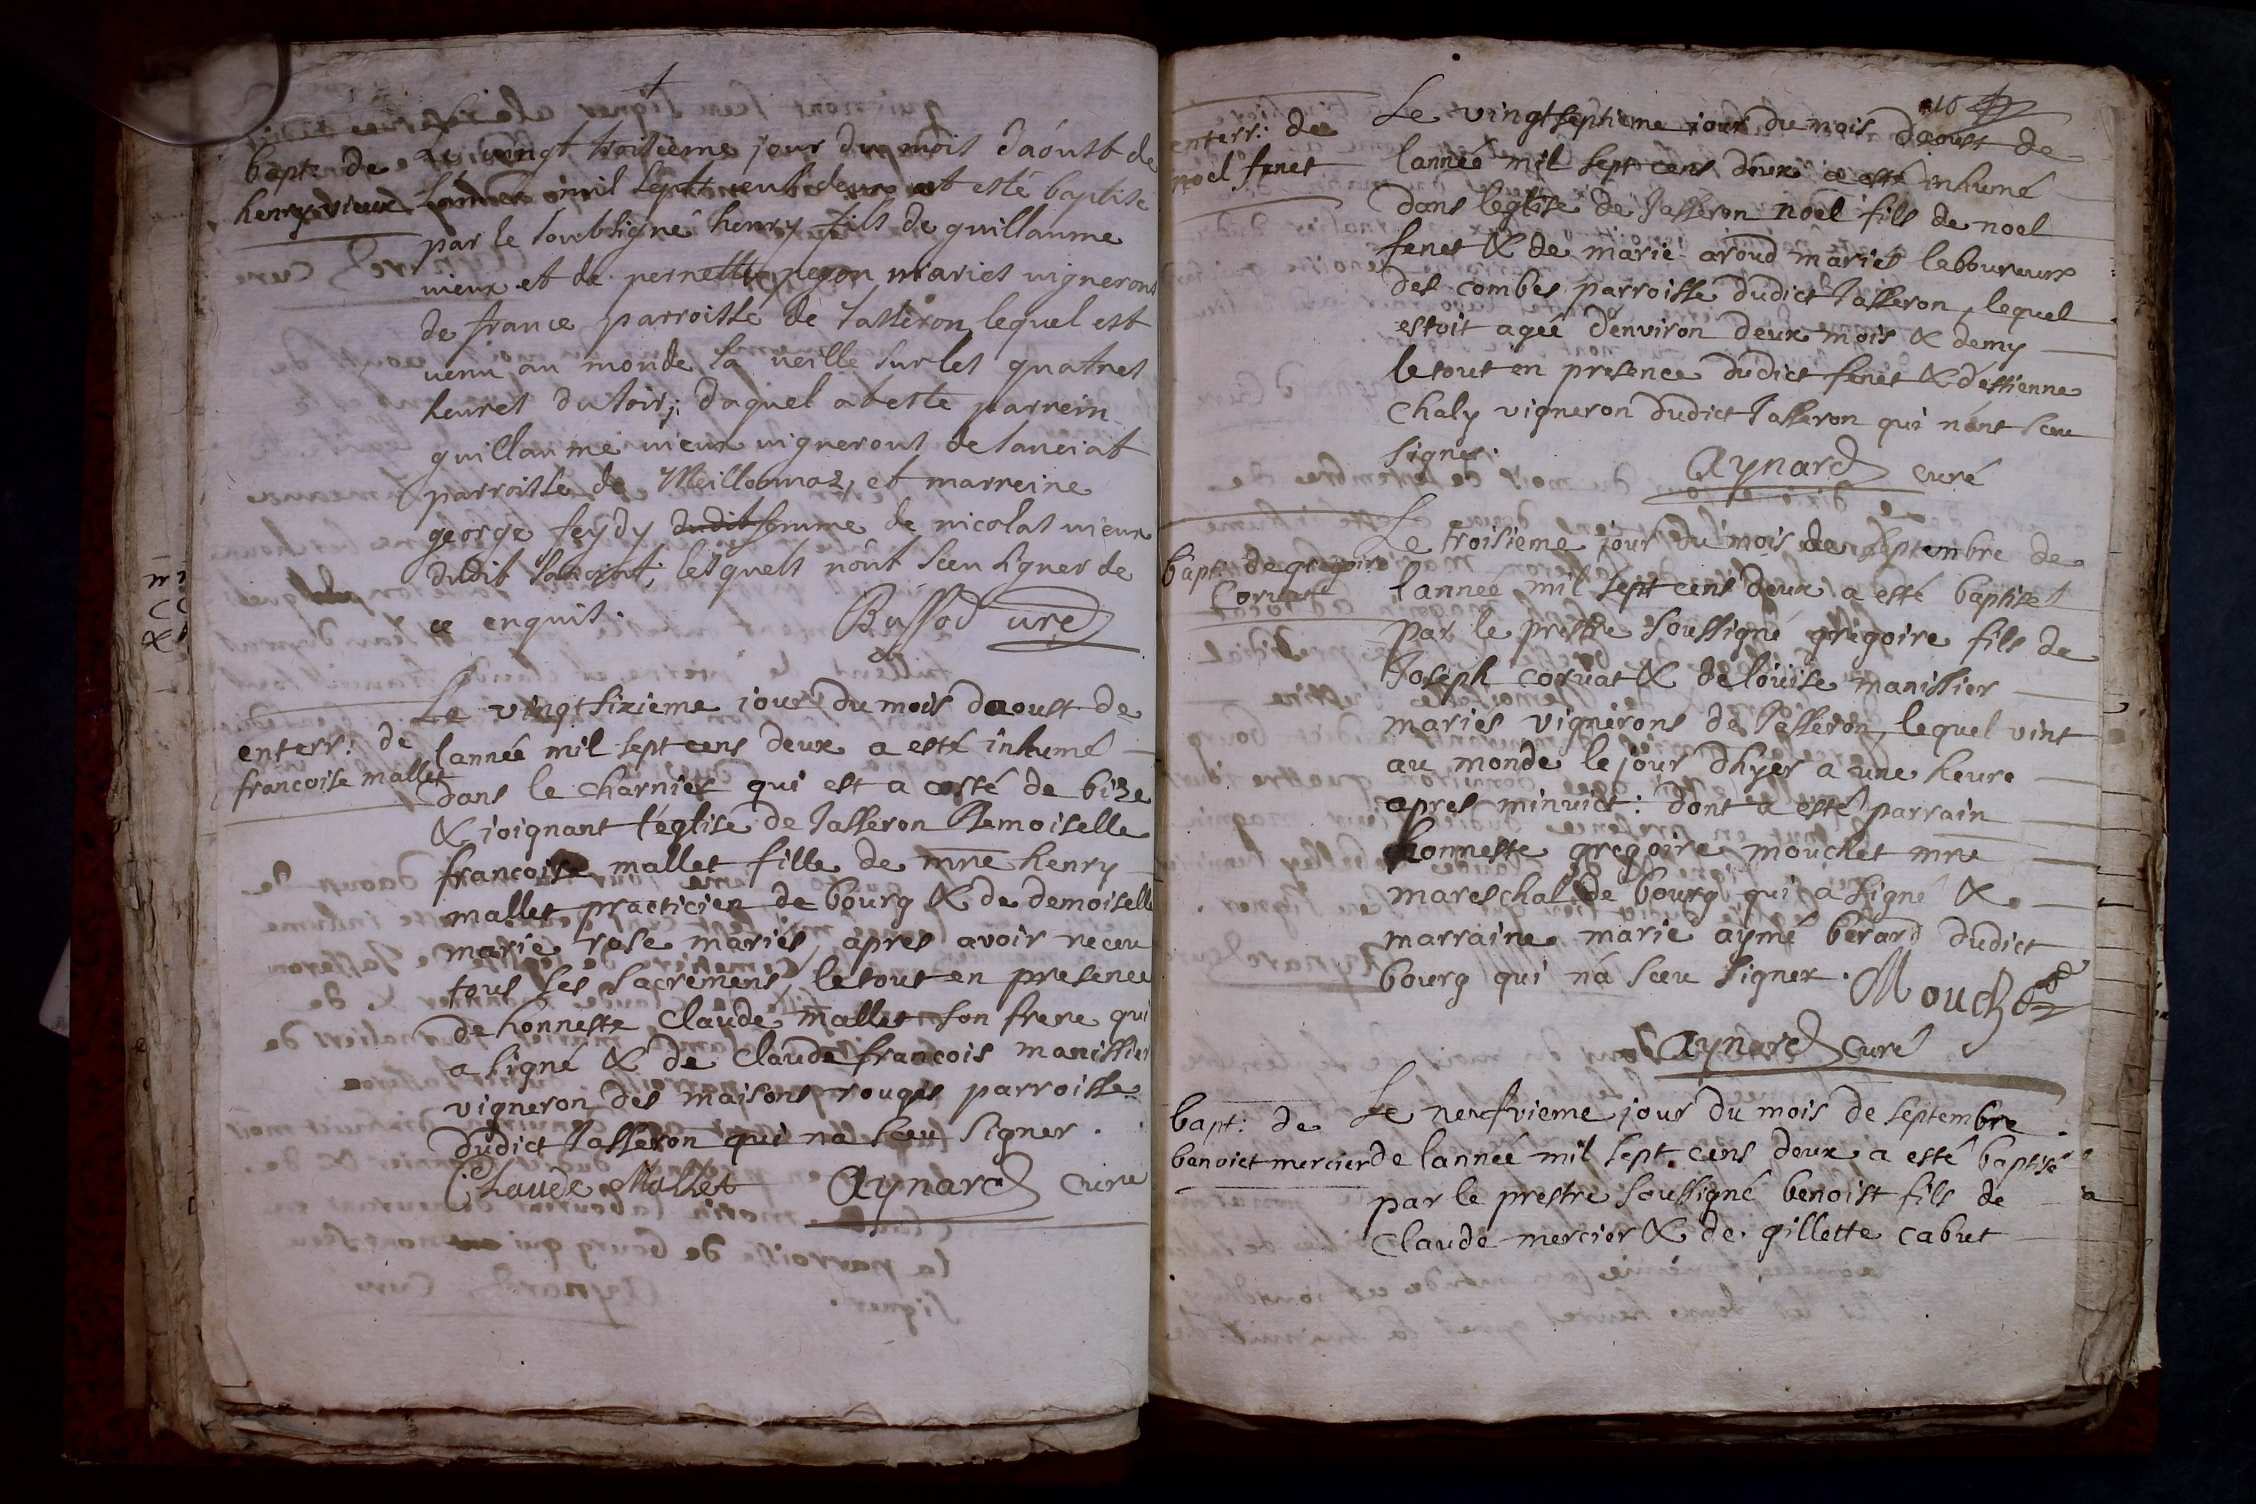 bapt: de
henry vieux
Le vingt troisieme jour du mois d'aoust de
l'année mil sept cent deux at esté baptisé
par le soubsigné henry fils de guillaume
vieux et de pernette pegon mariés vignerons
de france parroisse de Jasseron lequel est
venu au monde la veille sur les quatres
heures du soir; duquel at esté parrein
guillaume vieux vignerons de sanciat
parroisse de Meillonnaz, et marreine
george feydy dudit femme de nicolas vieux
dudit sanciat, lesquels n'ont sceu signer de
ce enquis. Buffod curé
enterr: de
francoise mallet
Le vingt sixieme jour du mois daoust de
lannée mil sept cens deux a esté inhumé
dans le charnier qui est a costé de bize
& joignant l'église de Jasseron Demoiselle
francoise mallet fille de mre henry
mallet practicien de bourg & de demoiselle
marie rose mariés, apres avoir receu
tous ses sacremens, le tout en presence
de honneste Claude mallet son frere qui
a signé & de Claude francois manissier
vigneron des maisons rouges parroisse
dudict Jasseron qui na sceu signer.
Claude Mallet Aynard Curé
enterr: de
noel fenet
Le vingt septieme jour du mois daoust de
lannée mil sept cens deux a esté inhumé
dans leglise de Jasseron noel fils de noel
fenet & de marie aroud mariés laboureurs
des combes parroisse dudict Jasseron, lequel
estoit agéé denviron deux mois & demy
le tout en presence dudict fenet & destienne
Chaly vigneron dudict Jasseron qui nont sceu
signer. Aynard curé
bapt: de gregoire
Corvat
Le troisieme jour du mois de septembre de
lannée mil sept cens deux a esté baptisé
par le prestre soussigné gregoire fils de
Joseph corvat & de loüise manissier
mariés vignerons de Jasseron, lequel vint
au monde le jour dhyer a une heure
apres minuict: dont a esté parrain
honneste gregoire mouchet mre
mareschal de bourg qui a signé &
marraine marie aymé berard dudict
bourg qui n'a sceu signer. Mouchet
Aynard Curé
bapt: de
benoict mercier
Le neufvieme jour du mois de septembre
de lannéé mil sept cens deux a esté baptisé
par le prestre soussigné benoist fils de
Claude mercier & de gillette cabut